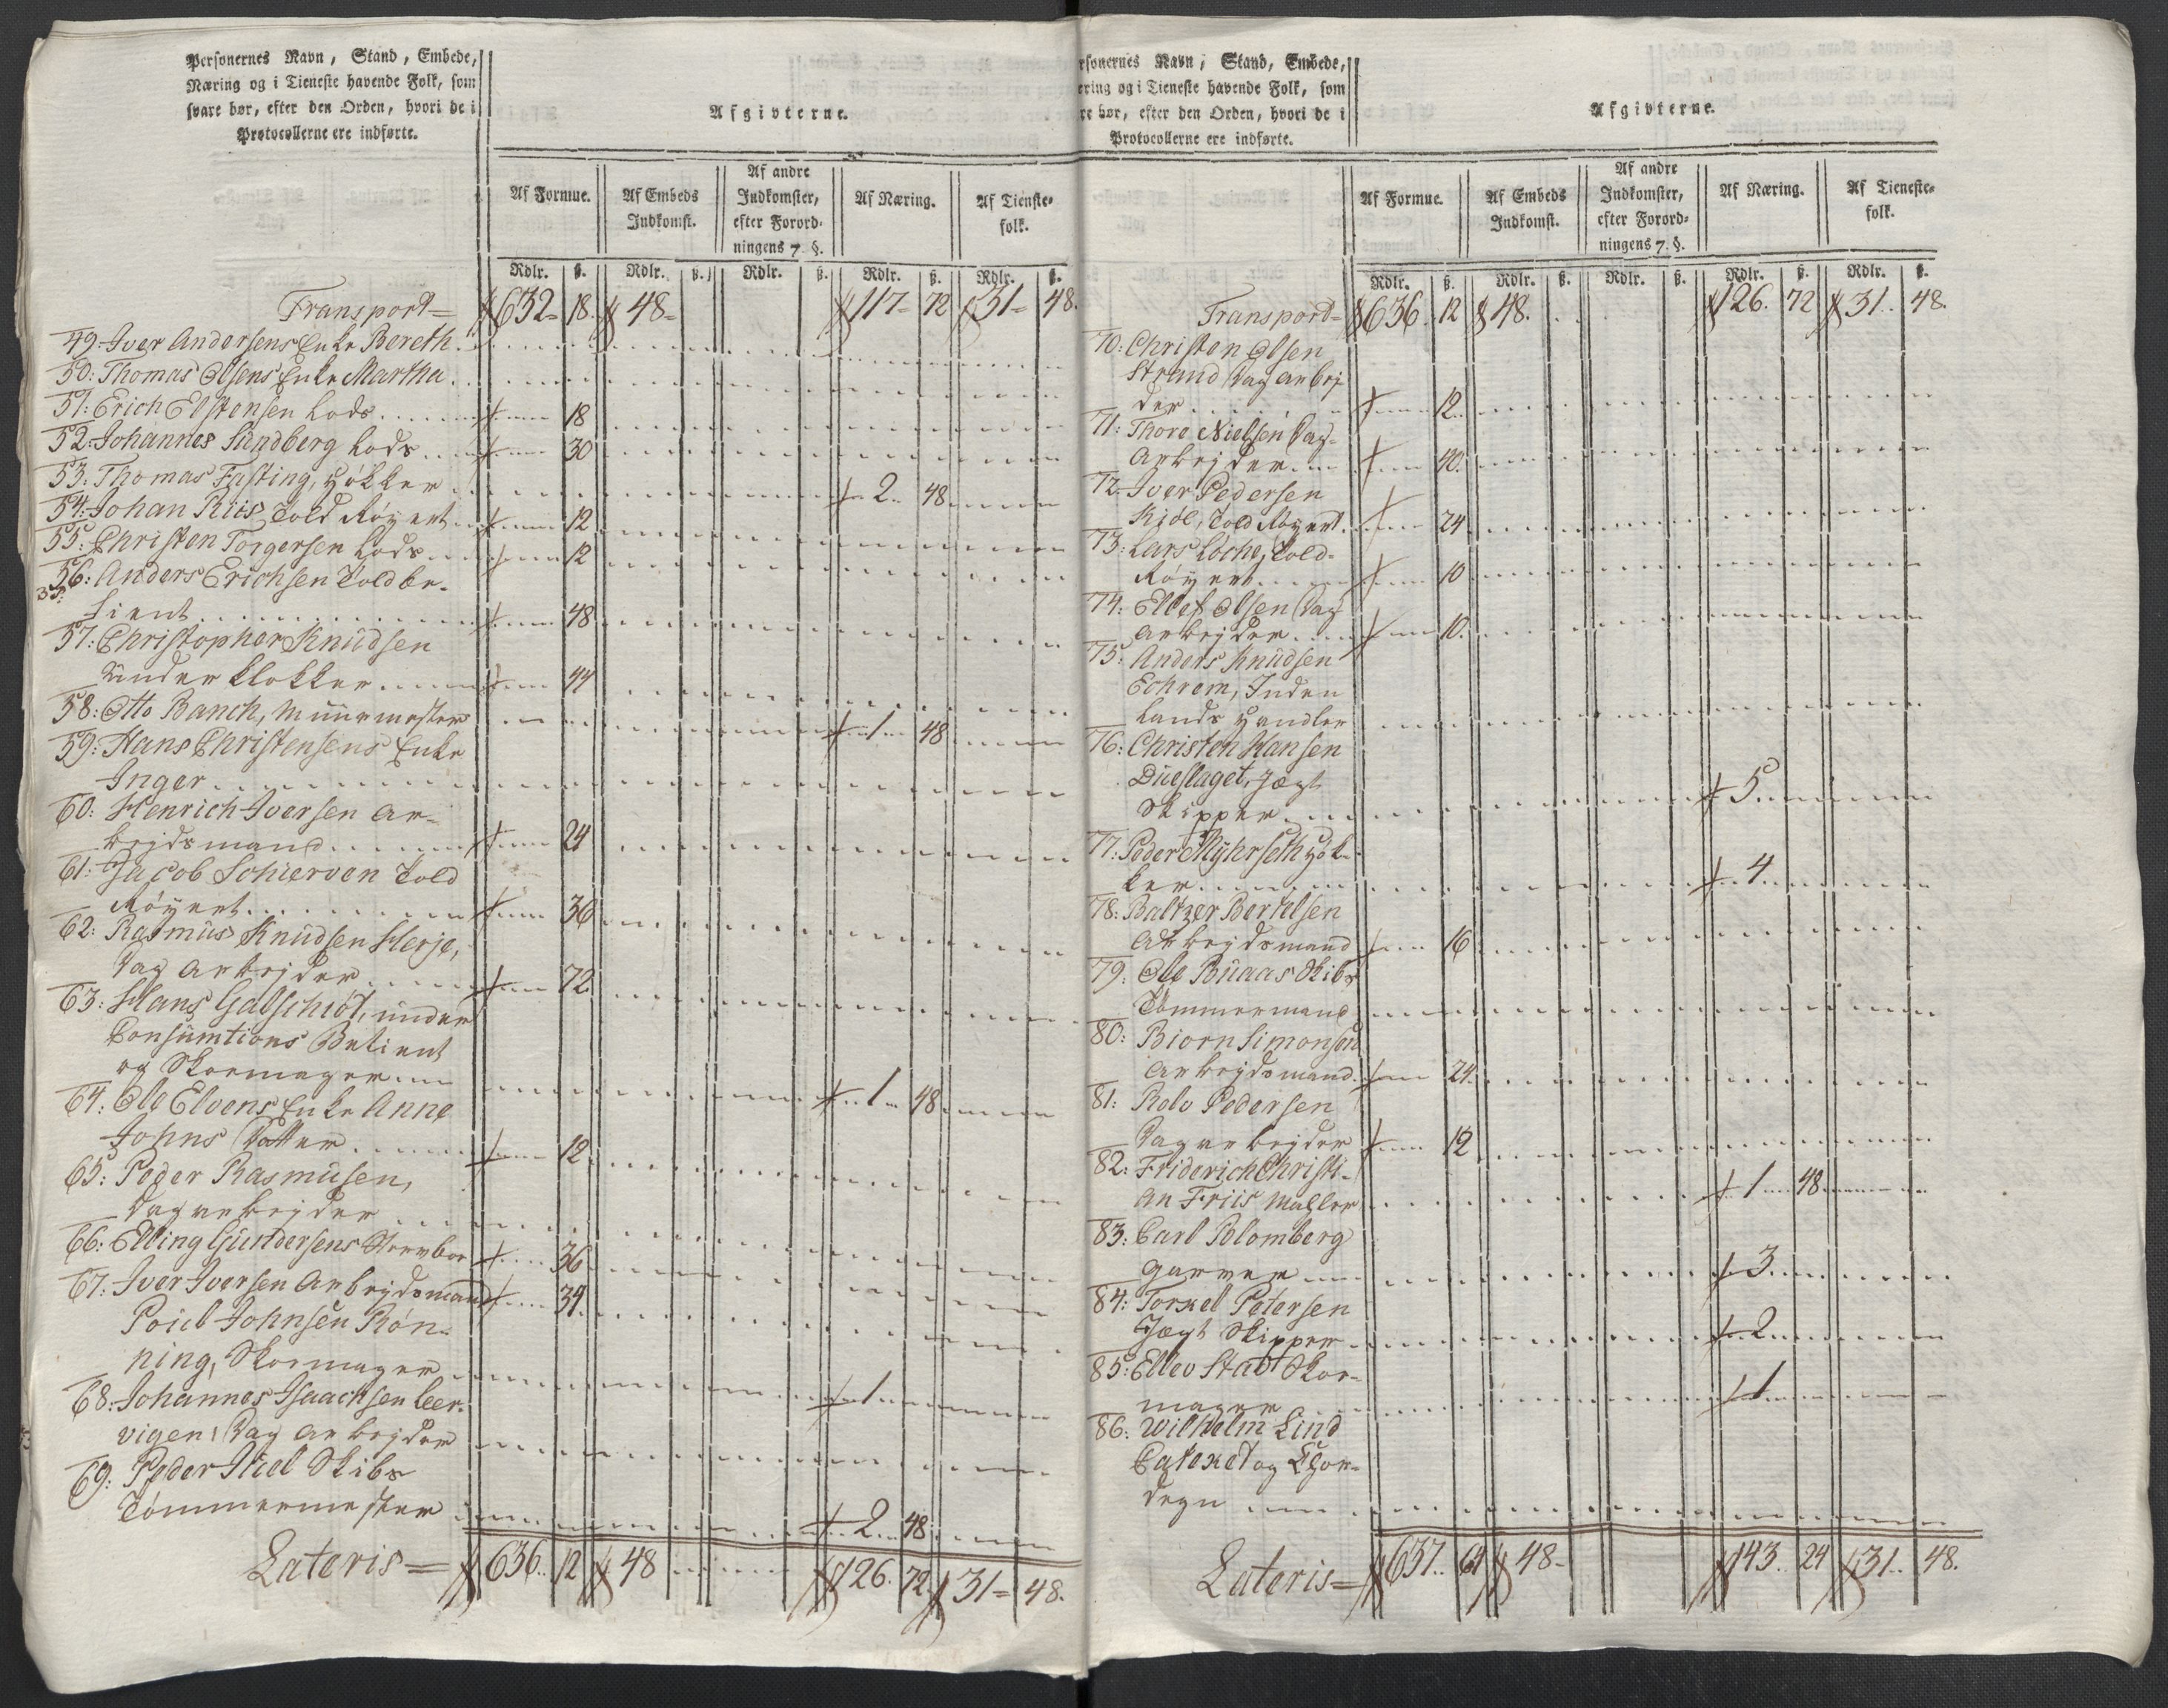 Personernes Navn, Stand, Embede,
Næring og i Tieneste havende Folk, som
svare bør, efter den Orden, hvori de i
Protocollerne ere indførte.
Afgivterne.
Af Formue.
Af Embeds
Indkomst.
Af andre
Indkomster,
efter Forord-
ningens 7. §.
Af Næring.
Af Tieneste-
folk.
Rdlr. ß. Rdlr. ß. Rdlr. ß. Rdlr. ß. Rdlr. ß.
Transport= 632= 18. 48= 117= 72 31= 48.
49. Iver Andersens Enke Bereth
50: Thomas Olsens Enke Martha
51: Erich Elstensen Lods 18
52: Johannes Sundberg Lods 30
53: Thomas Fasting, Høkker 2 48
54: Johan Riis Told Røyert 12
55: Christen Torgersen Lods 12
56: Anders Erichsen Toldbe-
tient 48
57: Christopher Knudsen
Under Klokker 44
58: Otto Banch, Muurmester 1 48
59: Hans Christensens Enke
Inger
60: Henrich Iversen Ar-
beidsmand 24
61: Jacob Schierven Told
Røyert 36
62: Rasmus Knudsen Herje,
Dag Arbejder 72
63: Hans Galschiöt, under
Consumtions Betient
og Skoemager 1 48
64: Ole Elvens Enke Anne
Johns Datter 12
65: Peder Rasmusen,
Dagarbejder
66: Elling Gundersens Sterbboe 36
67: Iver Iversen Arbejdsmand 34.
Poul Johnsen Røn-
ning, Skoemager 1
68: Johannes Isaachsen Leer-
vigen, Dag Arbejder
69: Peder Skibs
Tømmermester 2 48
Lateris= 636 12 48 126. 72. 31= 48.
Personernes Navn, Stand, Embede,
ering og i Tieneste havende Folk, som
re bør, efter den Orden, hvori de i
Protocollerne ere indførte.
Afgivterne.
Af Formue.
Af Embeds
Indkomst.
Af andre
Indkomster,
efter Forord-
ningens 7. §.
Af Næring.
Af Tieneste-
folk.
Rdlr. ß. Rdlr. ß. Rdlr. ß. Rdlr. ß. Rdlr. ß.
Transport= 636. 12 48. 126. 72 31. 48.
70: Christen Olsen
Strand Dag arbej
der 12
71: Thore Nielsen Dag-
Arbejder 40.
72. Iver Pedersen
Kiöl, Told Røyert. 24
73: Lars Loche, Told-
Røyert 10
74: Ellef Olsen Dag
arbejder 10.
75: Anders Knudsen
Echrem, Inden
Lands Handler
76: Christen Hansen
Dueslaget, Jægt
Skipper 5
77: Peder Myhrseth Høk-
ker 4
78: Baltzer Bertelsen
Arbejdsmand 16
79: Ole Buaas Skibs
Tømmermand
80: Biorn Simonsen
Arbejdsmand. 24.
81: Rolv Pedersen
Dagarbejder 12
82: Friderich Christi-
an Friis Mahler 1 48
83: Carl Blomberg
Garver 3
84: Torkel Petersen
Jægt Skipper 2
85: Ellev Stadt Skoe-
mager 1
86: Wilhelm Lind
Cateket og Chor-
degn
Lateris= 637. 64 48- 143. 24 31. 48.